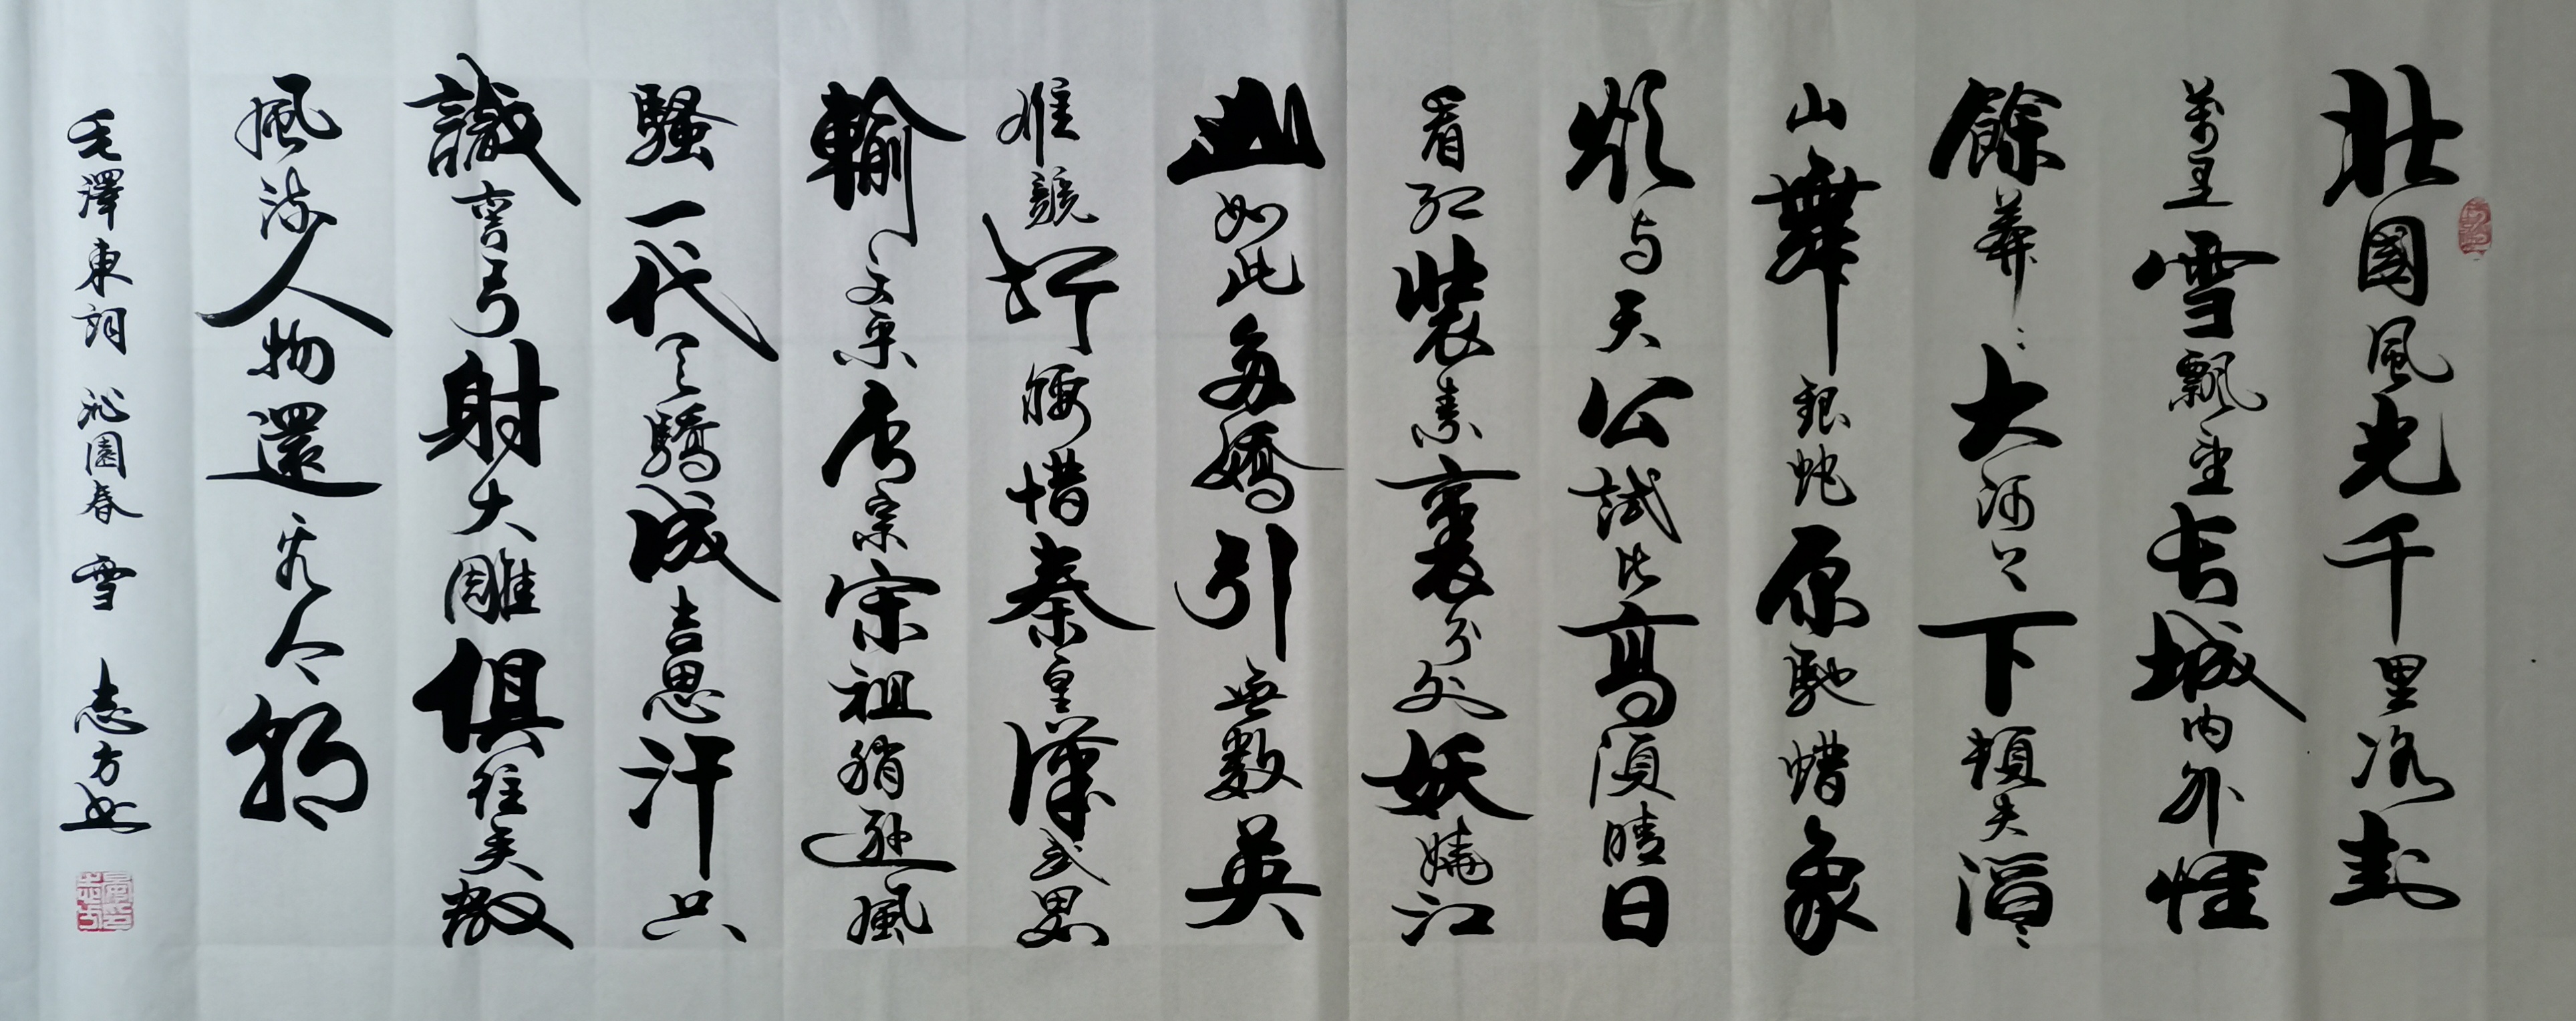 北國風光千里冰封
萬里雪飄望長城内外惟
餘莽莽大河上下頓失滔滔
山舞銀蛇原馳蜡象
欲与天公試比高須晴日
看紅裝素裹分外妖嬈江
山如此多嬌引無數英
雄競折腰惜秦皇漢武畧
輸文采唐宗宋祖稍遜風
騷一代天驕成吉思汗只
識彎弓射大雕俱往矣數
風流人物還看今朝
毛澤東詞 沁園春 雪 志方書